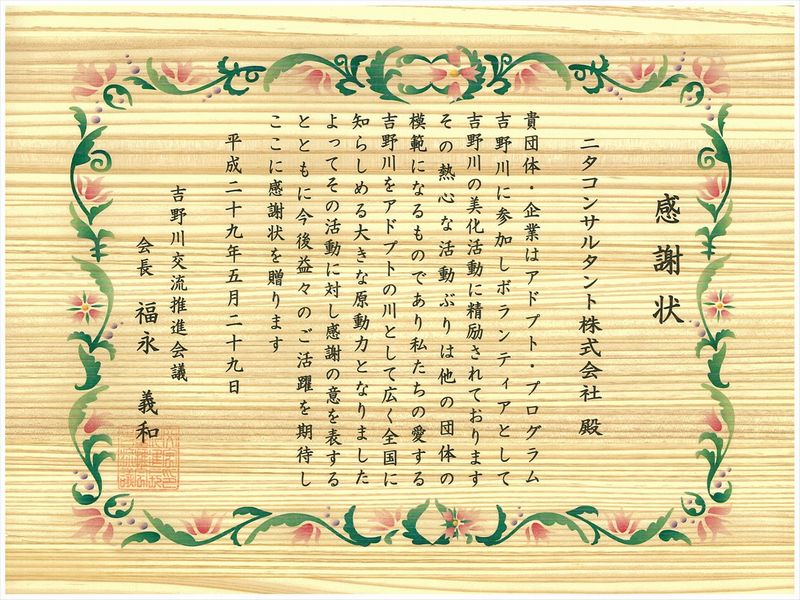 感謝状
ニタコンサルタント株式会社 殿
貴団体・企業はアドプト・プログラム
吉野川に参加しボランティアとして
吉野川の美化活動に精励されております
その熱心な活動ぶりは他の団体の
模範になるものであり私たちの愛する
吉野川をアドプトの川として広く全国に
知らしめる大きな原動力となりました
よってその活動に対し感謝の意を表する
とともに今後益々のご活躍を期待し
ここに感謝状を贈ります
平成二十九年五月二十九日
吉野川交流推進会議
会長 福永 義和